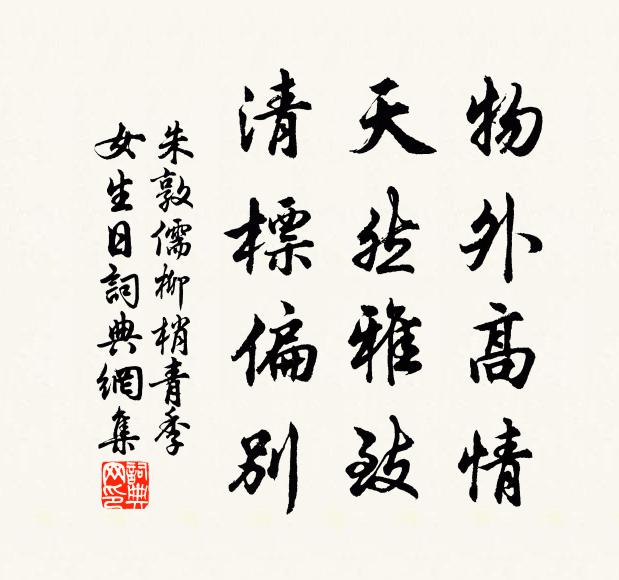 物外高情
天然雅致
清標偏別
朱敦儒柳梢青季
女生日詞典網集
詞典網印